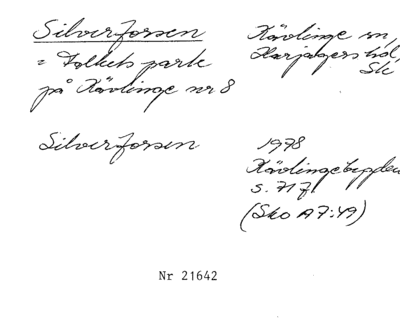 Silverforsen
= Folkets park
på Kävlinge nr 8
Kävlinge sn,
Harjagers hd,
Sk
Silverforsen
1978
Kävlingebygden
s. 71 f
(Sko A7:49)
Nr 21642